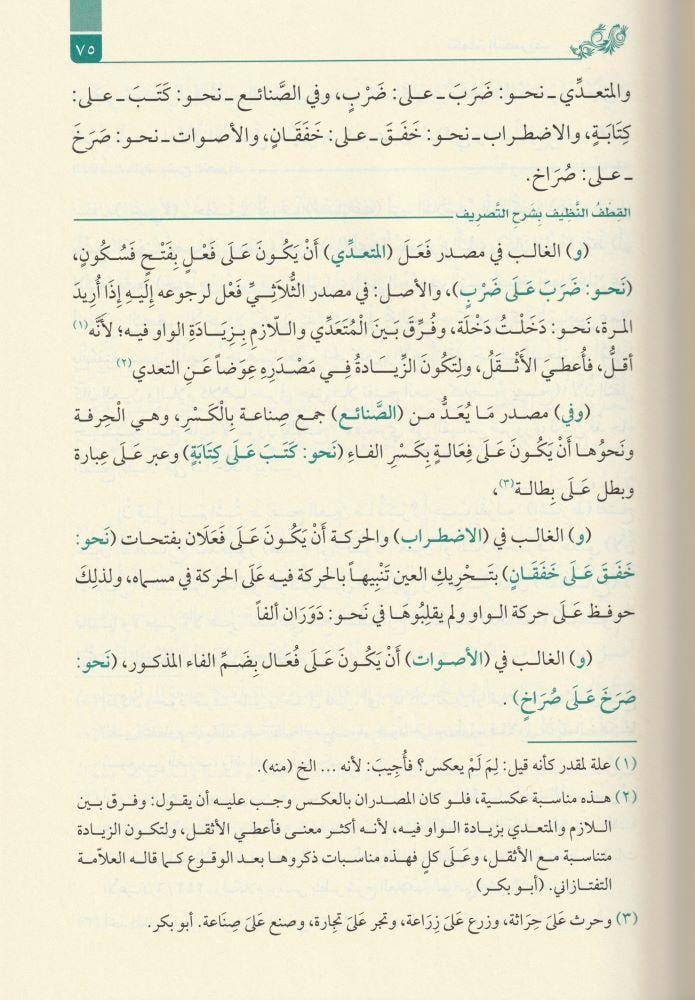 ٧٥
والمتعـدِّي ـ نحـو: ضَرَبَ ـ عـلى: ضَرْبٍ، وفي الصَّنائـع ـ نحـو: كَتَـبَ ـ عـلى:
كِتَابَـةٍ، والاضطـراب ـ نحـو: خَفَـقَ ـ عـلى: خَفَقَـانٍ، والأصـوات ـ نحـو: صَرَخَ
ـ عـلى: صُرَاخ.
القِطْفُ النَّظِيف بِشَرحِ التَّصرِيف
(و) الغالب في مصدر فَعَلَ (المتعدِّي) أَنْ يَكُونَ عَلَى فَعْلٍ بِفَتْحٍ فَسُكُونٍ،
(نَحو: ضَرَبَ عَلَى ضَرْبٍ)، والأصل: في مصدر الثُّلَاثيِّ فَعْل لرجوعه إِلَيهِ إذَا أُرِيدَ
المرة، نَحو: دَخَلْتُ دَخْلَة، وفُرِّقَ بَينَ الْمُتَعَدِّي واللَّازم بِزِيَادَةِ الواو فيه؛ لأَنَّه(١)
أقلُّ، فأُعطيَ الأَثْـقَلُ، ولِتكُونَ الزِّيـادةُ فِـي مَصْدَرِهِ عِوَضاً عَنِ التعدي(٢)
(وفي) مصدر مَا يُعَدُّ من (الصَّنائع) جمع صِناعة بِالْكَسْرِ، وهي الْحِرفة
ونَحوُها أَنْ يَكُونَ عَلَى فِعَالةٍ بِكَسْرِ الفاءِ (نَحو: كَتَبَ عَلَى كِتابَةٍ) وعبر عَلَى عِبارة
وبطل عَلَى بِطالة(٣)،
(و) الغالب في (الاضطراب) والحركة أَنْ يَكُونَ عَلَى فَعَلَان بفتحات (نَحو:
خَفَقَ عَلَى خَفَقَانٍ) بتَحْرِيكِ العين تَنْبِيهاً بالحركة فيه عَلَى الحركة في مسماه، ولذلِكَ
حوفظ عَلَى حركة الواو ولم يقلِبُوهَا في نَحو: دَوَرَان ألفاً
(و) الغالب في (الأصوات) أَنْ يَكُونَ عَلَى فُعَال بِضَمِّ الفاء المذكور، (نَحو:
صَرَخَ عَلَى صُرَاخٍ) .
(١) علة لمقدر كأنه قيل: لِمَ لَمْ يعكس؟ فأُجِيبَ: لأنه ... الخ (منه).
(٢) هذه مناسبة عكسية، فلو كان المصدران بالعكس وجب عليه أن يقول: وفرق بين
اللازم والمتعدي بزيادة الواو فيه، لأنه أكثر معنى فأعطي الأثقل، ولتكون الزيادة
متناسبة مع الأثقل، وعَلَى كلٍ فهذه مناسبات ذكروها بعد الوقوع كما قاله العلاّمة
التفتازاني. (أبو بكر)
(٣) وحرث عَلىَ حِرَاثة، وزرع عَلىَ زِرَاعة، وتجر عَلىَ تجِارة، وصنع عَلىَ صِنَاعة. أبو بكر.